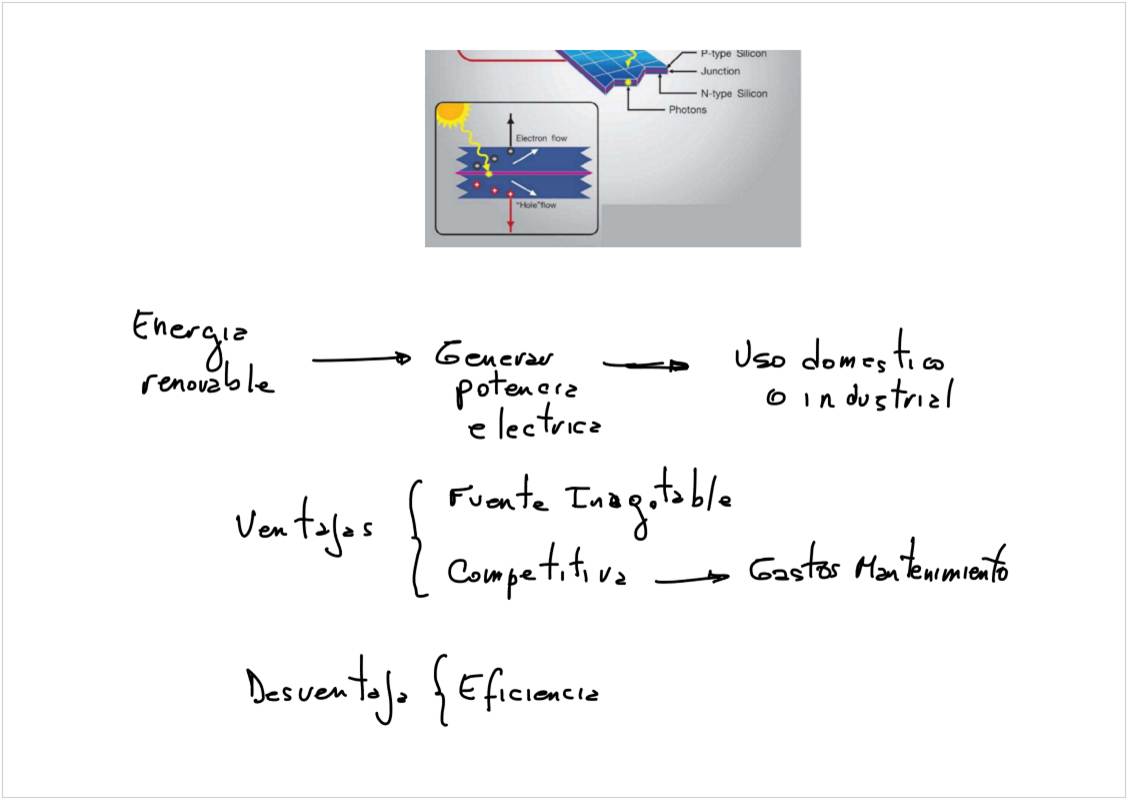 P-type Silicon
Junction
N-type Silicon
Photons
Electron flow
"Hole" flow
Energia
renovable
Generar
potencia
electrica
Uso domestico
o industrial
Ventajas
Fuente Inagotable
Competitiva
Gastos Mantenimiento
Desventaja
Eficiencia